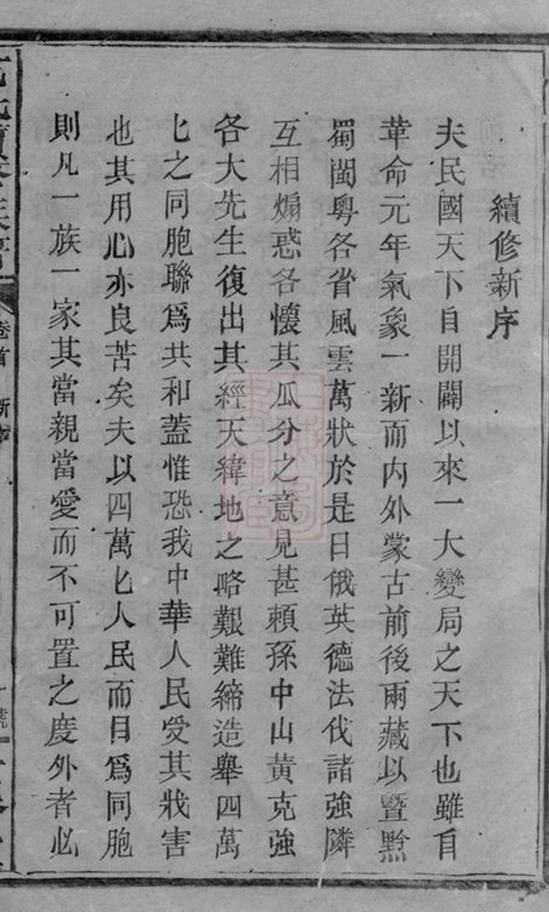 續修新序
夫民國天下自開闢以來一大變局之天下也雖自
革命元年氣象一新而內外蒙古前後兩藏以暨黔
蜀閩粵各省風雲萬狀於是日俄英德法伐諸強隣
互相煽惑各懷其瓜分之意見甚賴孫中山黃克強
各大先生復出其經天緯地之略艱難締造舉四萬
匕之同胞聯爲共和蓋惟恐我中華人民受其戕害
也其用心亦良苦矣夫以四萬匕人民而目爲同胞
則凡一族一家其當親當愛而不可置之度外者必
卷首 新序